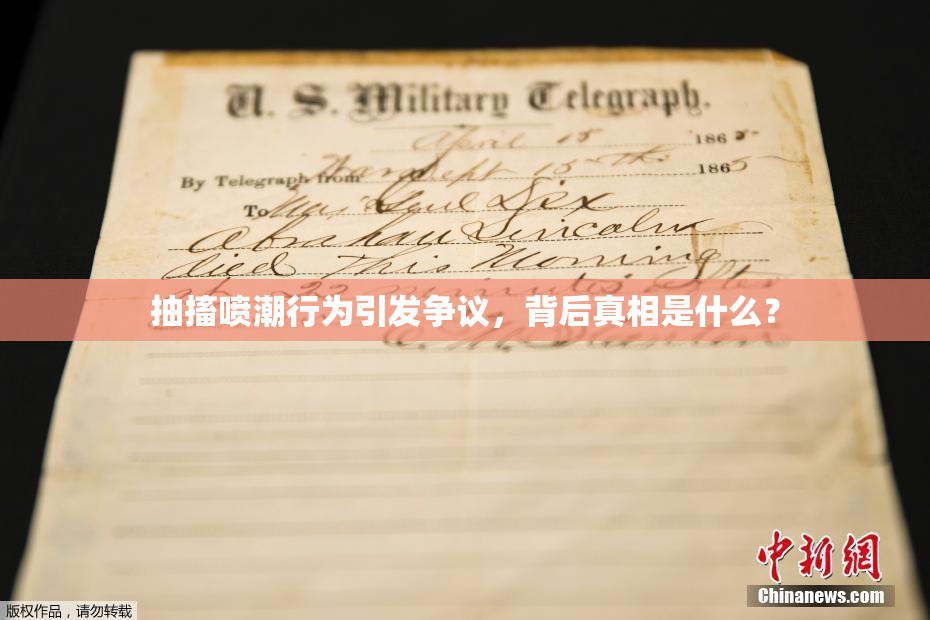 U. S. Military Telegraph.
April 15 1865
By Telegraph from War Dept 15th 1865
To Maj Genl Dix
Abraham Lincoln
died This Morning
at 22 minutes after
E. M. Stanton
抽搐喷潮行为引发争议，背后真相是什么？
中新网
Chinanews.com
版权作品，请勿转载